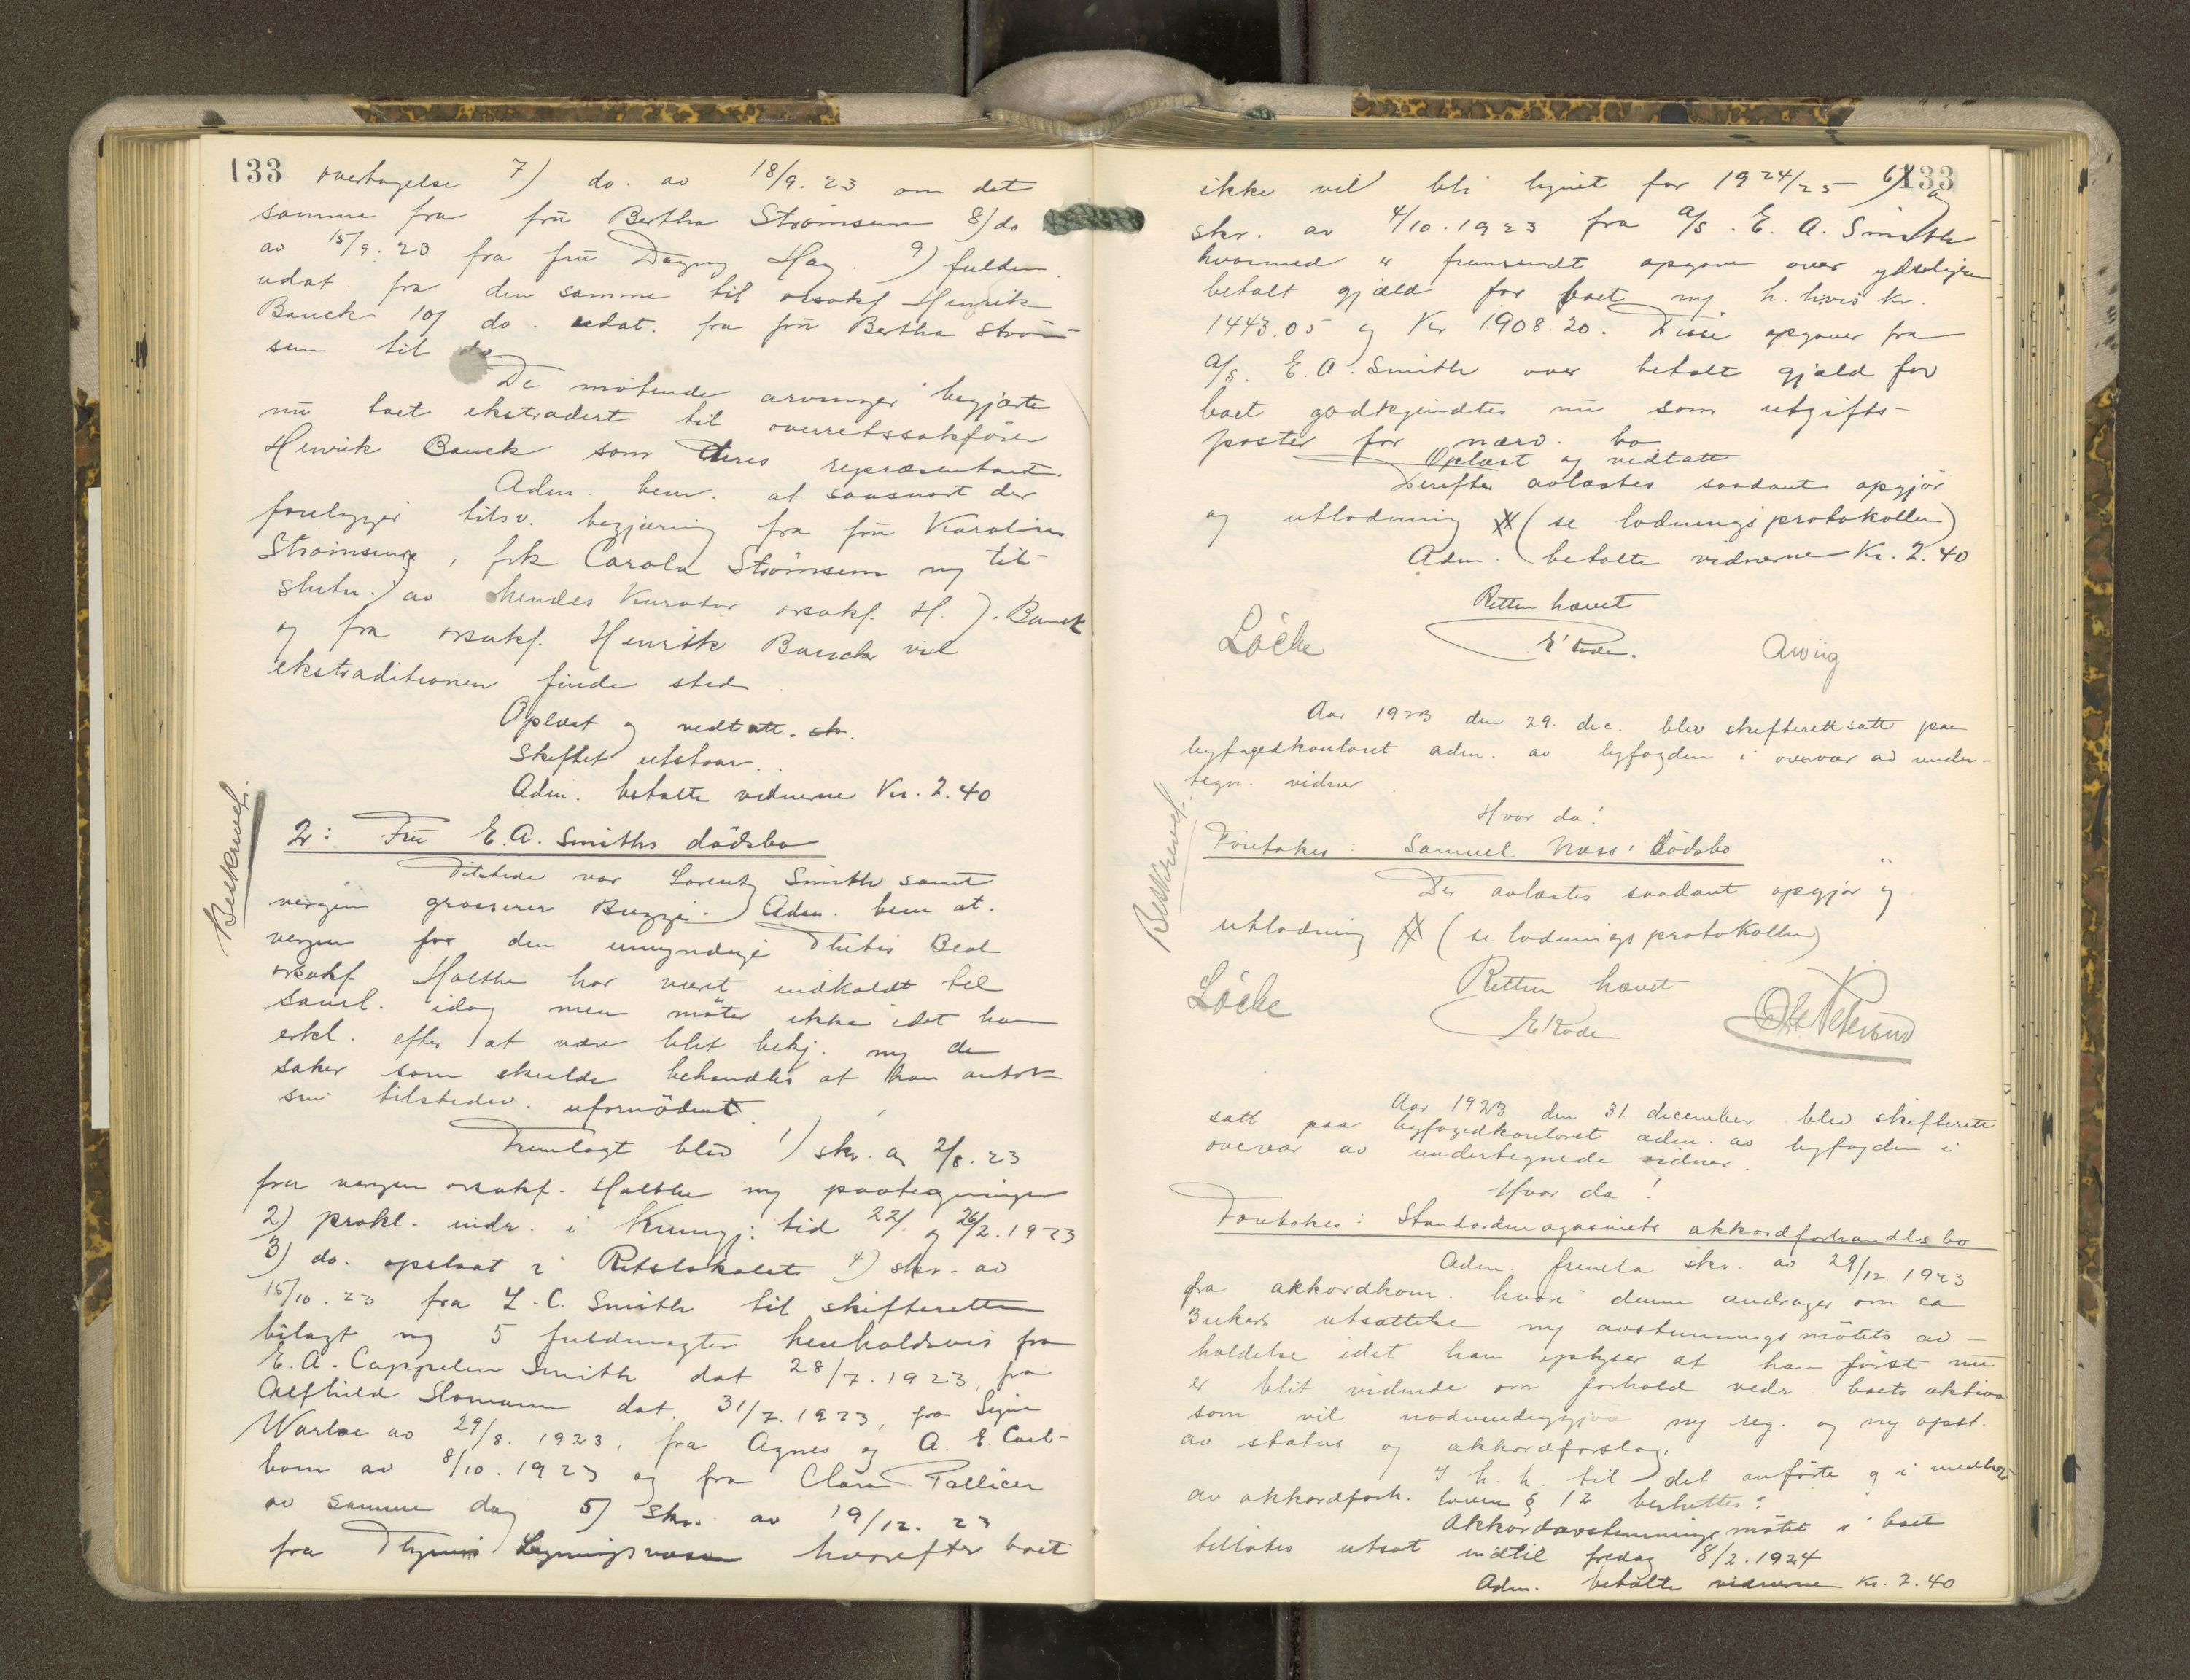 133 overtagelse 7) do. av 18/9.23 om det
samme fra fru Bertha Strømsem 8) do
av 15/9.23 fra fru Dagny Hay. 9) fuldm.
udat. fra den samme til orsakf Henrik
Bauck 10) do. udat. fra fru Bertha Strøm-
sem til do.
De møtende arvinger begjærte
nu boet ekstradert til overretssakfører
Henrik Bauck som deres repræsentant.
Adm. bem. at saasnart der
foreligger tilsv. begjæring fra fru Karoline
Strømsem, frk Carola Strømsem m/ til-
slutn. av hendes Kurator orsakf. H. J. Bauck
og fra orsakf. Henrik Bauck vil
ekstraditionen finde sted
Oplæst og vedtatt.
Skiftet utstaar.
Adm. betalte vidnerne Kr. 2.40
Beskrevet.
2: Fru E. A. Smiths dødsbo
Tilstede var Lorentz Smith samt
vergen grosserer Buzzi. Adm. bem at.
vergen for den umyndige Thetis Beal
orsakf Holthe har været indkaldt til
saml. idag men møter ikke idet han
erkl. efter at være blit bekj. m/ de
saker som skulde behandles at han antok
sin tilstedev. ufornødent.
Fremlagt blev 1) skr. av 2/8.23
fra vergen orsakf. Holthe m/ paategninger
2) prokl. indr. i Kungj: tid 22/ og 26/2.1923
3) do. opslaat i Retslokalet 4) skr. av
15/10.23 fra L. C. Smith til skifteretten
bilagt m/ 5 fuldmagter henholdsvis fra
E. A. Cappelen Smith dat 28/7.1923, fra
Alfhild Slomann dat. 31/7.1923, fra Signe
Warloe av 29/8.1923, fra Agnes og A. E. Carl-
bom av 8/10.1923 og fra Clara Pallicer
av samme dag 5) Skr. av 19/12.23
fra Thjems Ligningsvæsen hvorefter boet
133
ikke vil bli lignet for 1924/25 6)
skr. av 4/10.1923 fra A/S. E. A. Smith
hvormed er fremsendt opgave over ydeligere
betalt gjæld for boet m/ h.hvis kr.
1443.05 og Kr 1908.20. Disse opgaver fra
A/S. E. A. Smith over betalt gjæld for
boet godkjendtes nu som utgifts-
poster for nærv. bo
Oplæst og vedtatt
Derefter avlæstes saadant opgjør
og utlodning # (se lodningsprotokollen)
Adm. betalte vidnerne Kr. 2.40
Retten hævet
Løcke E Rode. Awiig
Aar 1923 den 29. dec. blev skifterett satt paa
byfogedkontoret adm. av byfogden i overvær av under-
tegn. vidner
Hvor da!
Beskrevet.
Foretokes: Samuel Næss' dødsbo
Der avlæstes saadant opgjør og
utlodning # (se lodningsprotokollen)
Retten hævet
Løcke E Rode O. H. Petersen
Aar 1923 den 31. december blev skifterett
satt paa byfogedkontoret adm. av byfogden i
overvær av undertegnede vidner.
Hvor da!
Foretokes: Standardmagasinets akkordforhandl.s bo
Adm. freml. skr. av 29/12.1923
fra akkordkom. hvori denne andrager om ca
3 ukers utsættelse m/ avstemningsmøtets av-
holdelse idet han oplyser at han først nu
er blit vidende om forhold vedr. boets aktiva
som vil nødvendiggjøre ny reg. og ny opst.
av status og akkordforslag.
I h. h. til det anførte og i medhold
av akkordforh. lovens § 12 besluttes:
Akkordavstemningsmøtet i boet
tillates utsat indtil fredag 8/2.1924
Adm. betalte vidnerne Kr. 2.40